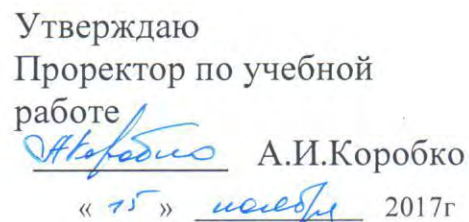 Утверждаю
Проректор по учебной
работе
АКоробко А.И.Коробко
« 15 » ноября 2017г